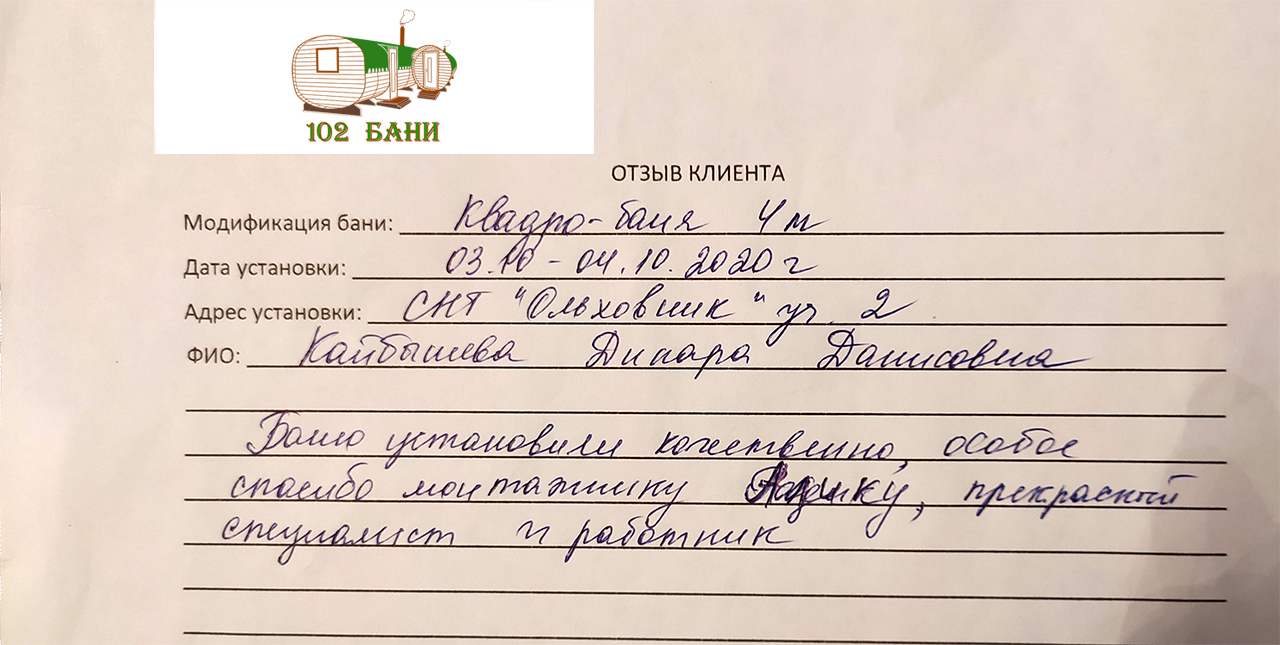 102 БАНИ
ОТЗЫВ КЛИЕНТА
Модификация бани: Квадро-баня 4 м
Дата установки: 03.10 - 04.10.2020 г
Адрес установки: СНТ "Ольховник" уч. 2
ФИО: Каибышева Динара Данисовна
Баню установили качественно, особое
спасибо монтажнику прекрасный
специалист и работник